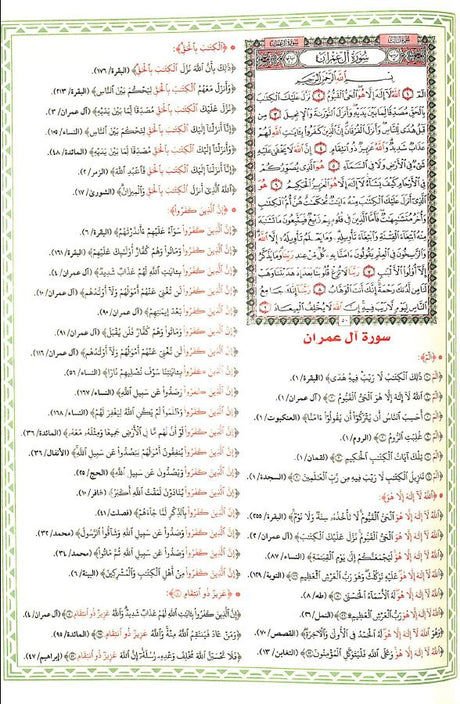 سُورَةُ آلِ عِمْرَانَ
بِسْمِ اللَّهِ الرَّحْمَٰنِ الرَّحِيمِ
الٓمٓ ١ اللَّهُ لَا إِلَٰهَ إِلَّا هُوَ الْحَيُّ الْقَيُّومُ ٢ نَزَّلَ عَلَيْكَ الْكِتَابَ
بِالْحَقِّ مُصَدِّقًا لِّمَا بَيْنَ يَدَيْهِ وَأَنزَلَ التَّوْرَاةَ وَالْإِنجِيلَ ٣ مِن
قَبْلُ هُدًى لِّلنَّاسِ وَأَنزَلَ الْفُرْقَانَ إِنَّ الَّذِينَ كَفَرُوا بِآيَاتِ اللَّهِ لَهُمْ
عَذَابٌ شَدِيدٌ وَاللَّهُ عَزِيزٌ ذُو انتِقَامٍ ٤ إِنَّ اللَّهَ لَا يَخْفَىٰ عَلَيْهِ شَيْءٌ
فِي الْأَرْضِ وَلَا فِي السَّمَاءِ ٥ هُوَ الَّذِي يُصَوِّرُكُمْ
فِي الْأَرْحَامِ كَيْفَ يَشَاءُ لَا إِلَٰهَ إِلَّا هُوَ الْعَزِيزُ الْحَكِيمُ ٦ هُوَ
الَّذِي أَنزَلَ عَلَيْكَ الْكِتَابَ مِنْهُ آيَاتٌ مُّحْكَمَاتٌ هُنَّ أُمُّ الْكِتَابِ
وَأُخَرُ مُتَشَابِهَاتٌ فَأَمَّا الَّذِينَ فِي قُلُوبِهِمْ زَيْغٌ فَيَتَّبِعُونَ مَا تَشَابَهَ
مِنْهُ ابْتِغَاءَ الْفِتْنَةِ وَابْتِغَاءَ تَأْوِيلِهِ وَمَا يَعْلَمُ تَأْوِيلَهُ إِلَّا اللَّهُ
وَالرَّاسِخُونَ فِي الْعِلْمِ يَقُولُونَ آمَنَّا بِهِ كُلٌّ مِّنْ عِندِ رَبِّنَا وَمَا يَذَّكَّرُ
إِلَّا أُولُو الْأَلْبَابِ ٧ رَبَّنَا لَا تُزِغْ قُلُوبَنَا بَعْدَ إِذْ هَدَيْتَنَا وَهَبْ
لَنَا مِن لَّدُنكَ رَحْمَةً إِنَّكَ أَنتَ الْوَهَّابُ ٨ رَبَّنَا إِنَّكَ جَامِعُ
النَّاسِ لِيَوْمٍ لَّا رَيْبَ فِيهِ إِنَّ اللَّهَ لَا يُخْلِفُ الْمِيعَادَ ٩
٥٠
سورة آل عمران
﴿الٓمٓ﴾:
﴿ذَٰلِكَ الْكِتَابُ لَا رَيْبَ فِيهِ هُدًى﴾ (البقرة/١).
﴿اللَّهُ لَا إِلَٰهَ إِلَّا هُوَ الْحَيُّ الْقَيُّومُ﴾ (آل عمران/١).
﴿أَحَسِبَ النَّاسُ أَن يُتْرَكُوا أَن يَقُولُوا آمَنَّا﴾ (العنكبوت/١).
﴿غُلِبَتِ الرُّومُ﴾ (الروم/١).
﴿تِلْكَ آيَاتُ الْكِتَابِ الْحَكِيمِ﴾ (لقمان/١).
﴿تَنزِيلُ الْكِتَابِ لَا رَيْبَ فِيهِ مِن رَّبِّ الْعَالَمِينَ﴾ (السجدة/١).
﴿اللَّهُ لَا إِلَٰهَ إِلَّا هُوَ﴾:
﴿اللَّهُ لَا إِلَٰهَ إِلَّا هُوَ الْحَيُّ الْقَيُّومُ لَا تَأْخُذُهُ سِنَةٌ وَلَا نَوْمٌ﴾ (البقرة/٢٥٥).
﴿اللَّهُ لَا إِلَٰهَ إِلَّا هُوَ الْحَيُّ الْقَيُّومُ نَزَّلَ عَلَيْكَ الْكِتَابَ﴾ (آل عمران/٢).
﴿اللَّهُ لَا إِلَٰهَ إِلَّا هُوَ لَيَجْمَعَنَّكُمْ إِلَىٰ يَوْمِ الْقِيَامَةِ﴾ (النساء/٨٧).
﴿لَا إِلَٰهَ إِلَّا هُوَ عَلَيْهِ تَوَكَّلْتُ وَهُوَ رَبُّ الْعَرْشِ الْعَظِيمِ﴾ (التوبة/١٢٩).
﴿اللَّهُ لَا إِلَٰهَ إِلَّا هُوَ لَهُ الْأَسْمَاءُ الْحُسْنَىٰ﴾ (طه/٨).
﴿اللَّهُ لَا إِلَٰهَ إِلَّا هُوَ رَبُّ الْعَرْشِ الْعَظِيمِ﴾ (النمل/٢٦).
﴿وَهُوَ اللَّهُ لَا إِلَٰهَ إِلَّا هُوَ لَهُ الْحَمْدُ فِي الْأُولَىٰ وَالْآخِرَةِ﴾ (القصص/٧٠).
﴿اللَّهُ لَا إِلَٰهَ إِلَّا هُوَ وَعَلَى اللَّهِ فَلْيَتَوَكَّلِ الْمُؤْمِنُونَ﴾ (التغابن/١٣).
﴿الْكِتَابَ بِالْحَقِّ﴾:
﴿ذَٰلِكَ بِأَنَّ اللَّهَ نَزَّلَ الْكِتَابَ بِالْحَقِّ﴾ (البقرة/١٧٦).
﴿وَأَنزَلَ مَعَهُمُ الْكِتَابَ بِالْحَقِّ لِيَحْكُمَ بَيْنَ النَّاسِ﴾ (البقرة/٢١٣).
﴿نَزَّلَ عَلَيْكَ الْكِتَابَ بِالْحَقِّ مُصَدِّقًا لِّمَا بَيْنَ يَدَيْهِ﴾ (آل عمران/٣).
﴿إِنَّا أَنزَلْنَا إِلَيْكَ الْكِتَابَ بِالْحَقِّ لِتَحْكُمَ بَيْنَ النَّاسِ﴾ (النساء/١٠٥).
﴿وَأَنزَلْنَا إِلَيْكَ الْكِتَابَ بِالْحَقِّ مُصَدِّقًا لِّمَا بَيْنَ يَدَيْهِ﴾ (المائدة/٤٨).
﴿إِنَّا أَنزَلْنَا إِلَيْكَ الْكِتَابَ بِالْحَقِّ﴾ (الزمر/٢).
﴿اللَّهُ الَّذِي أَنزَلَ الْكِتَابَ بِالْحَقِّ وَالْمِيزَانَ﴾ (الشورى/١٧).
﴿إِنَّ الَّذِينَ كَفَرُوا﴾:
﴿إِنَّ الَّذِينَ كَفَرُوا سَوَاءٌ عَلَيْهِمْ أَأَنذَرْتَهُمْ﴾ (البقرة/٦).
﴿إِنَّ الَّذِينَ كَفَرُوا وَمَاتُوا وَهُمْ كُفَّارٌ أُولَٰئِكَ عَلَيْهِمْ﴾ (البقرة/١٦١).
﴿إِنَّ الَّذِينَ كَفَرُوا بِآيَاتِ اللَّهِ لَهُمْ عَذَابٌ شَدِيدٌ﴾ (آل عمران/٤).
﴿إِنَّ الَّذِينَ كَفَرُوا لَن تُغْنِيَ عَنْهُمْ أَمْوَالُهُمْ وَلَا أَوْلَادُهُم﴾ (آل عمران/١٠).
﴿إِنَّ الَّذِينَ كَفَرُوا بَعْدَ إِيمَانِهِمْ﴾ (آل عمران/٩٠).
﴿إِنَّ الَّذِينَ كَفَرُوا وَمَاتُوا وَهُمْ كُفَّارٌ فَلَن يُقْبَلَ﴾ (آل عمران/٩١).
﴿إِنَّ الَّذِينَ كَفَرُوا لَن تُغْنِيَ عَنْهُمْ أَمْوَالُهُمْ وَلَا أَوْلَادُهُم﴾ (آل عمران/١١٦).
﴿إِنَّ الَّذِينَ كَفَرُوا بِآيَاتِنَا سَوْفَ نُصْلِيهِمْ نَارًا﴾ (النساء/٥٦).
﴿إِنَّ الَّذِينَ كَفَرُوا وَصَدُّوا عَن سَبِيلِ اللَّهِ﴾ (النساء/١٦٧).
﴿إِنَّ الَّذِينَ كَفَرُوا وَظَلَمُوا لَمْ يَكُنِ اللَّهُ لِيَغْفِرَ لَهُمْ﴾ (النساء/١٦٨).
﴿إِنَّ الَّذِينَ كَفَرُوا لَوْ أَنَّ لَهُم مَّا فِي الْأَرْضِ جَمِيعًا وَمِثْلَهُ مَعَهُ﴾ (المائدة/٣٦).
﴿إِنَّ الَّذِينَ كَفَرُوا يُنفِقُونَ أَمْوَالَهُمْ لِيَصُدُّوا عَن سَبِيلِ اللَّهِ﴾ (الأنفال/٣٦).
﴿إِنَّ الَّذِينَ كَفَرُوا وَيَصُدُّونَ عَن سَبِيلِ اللَّهِ﴾ (الحج/٢٥).
﴿إِنَّ الَّذِينَ كَفَرُوا يُنَادَوْنَ لَمَقْتُ اللَّهِ أَكْبَرُ﴾ (غافر/١٠).
﴿إِنَّ الَّذِينَ كَفَرُوا بِالذِّكْرِ لَمَّا جَاءَهُمْ﴾ (فصلت/٤١).
﴿إِنَّ الَّذِينَ كَفَرُوا وَصَدُّوا عَن سَبِيلِ اللَّهِ وَشَاقُّوا الرَّسُولَ﴾ (محمد/٣٢).
﴿إِنَّ الَّذِينَ كَفَرُوا وَصَدُّوا عَن سَبِيلِ اللَّهِ ثُمَّ مَاتُوا﴾ (محمد/٣٤).
﴿إِنَّ الَّذِينَ كَفَرُوا مِنْ أَهْلِ الْكِتَابِ وَالْمُشْرِكِينَ﴾ (البينة/٦).
﴿عَزِيزٌ ذُو انتِقَامٍ﴾:
﴿إِنَّ الَّذِينَ كَفَرُوا بِآيَاتِ اللَّهِ لَهُمْ عَذَابٌ شَدِيدٌ وَاللَّهُ عَزِيزٌ ذُو انتِقَامٍ﴾ (آل عمران/٤).
﴿وَمَنْ عَادَ فَيَنتَقِمُ اللَّهُ مِنْهُ وَاللَّهُ عَزِيزٌ ذُو انتِقَامٍ﴾ (المائدة/٩٥).
﴿فَلَا تَحْسَبَنَّ اللَّهَ مُخْلِفَ وَعْدِهِ رُسُلَهُ إِنَّ اللَّهَ عَزِيزٌ ذُو انتِقَامٍ﴾ (إبراهيم/٤٧).